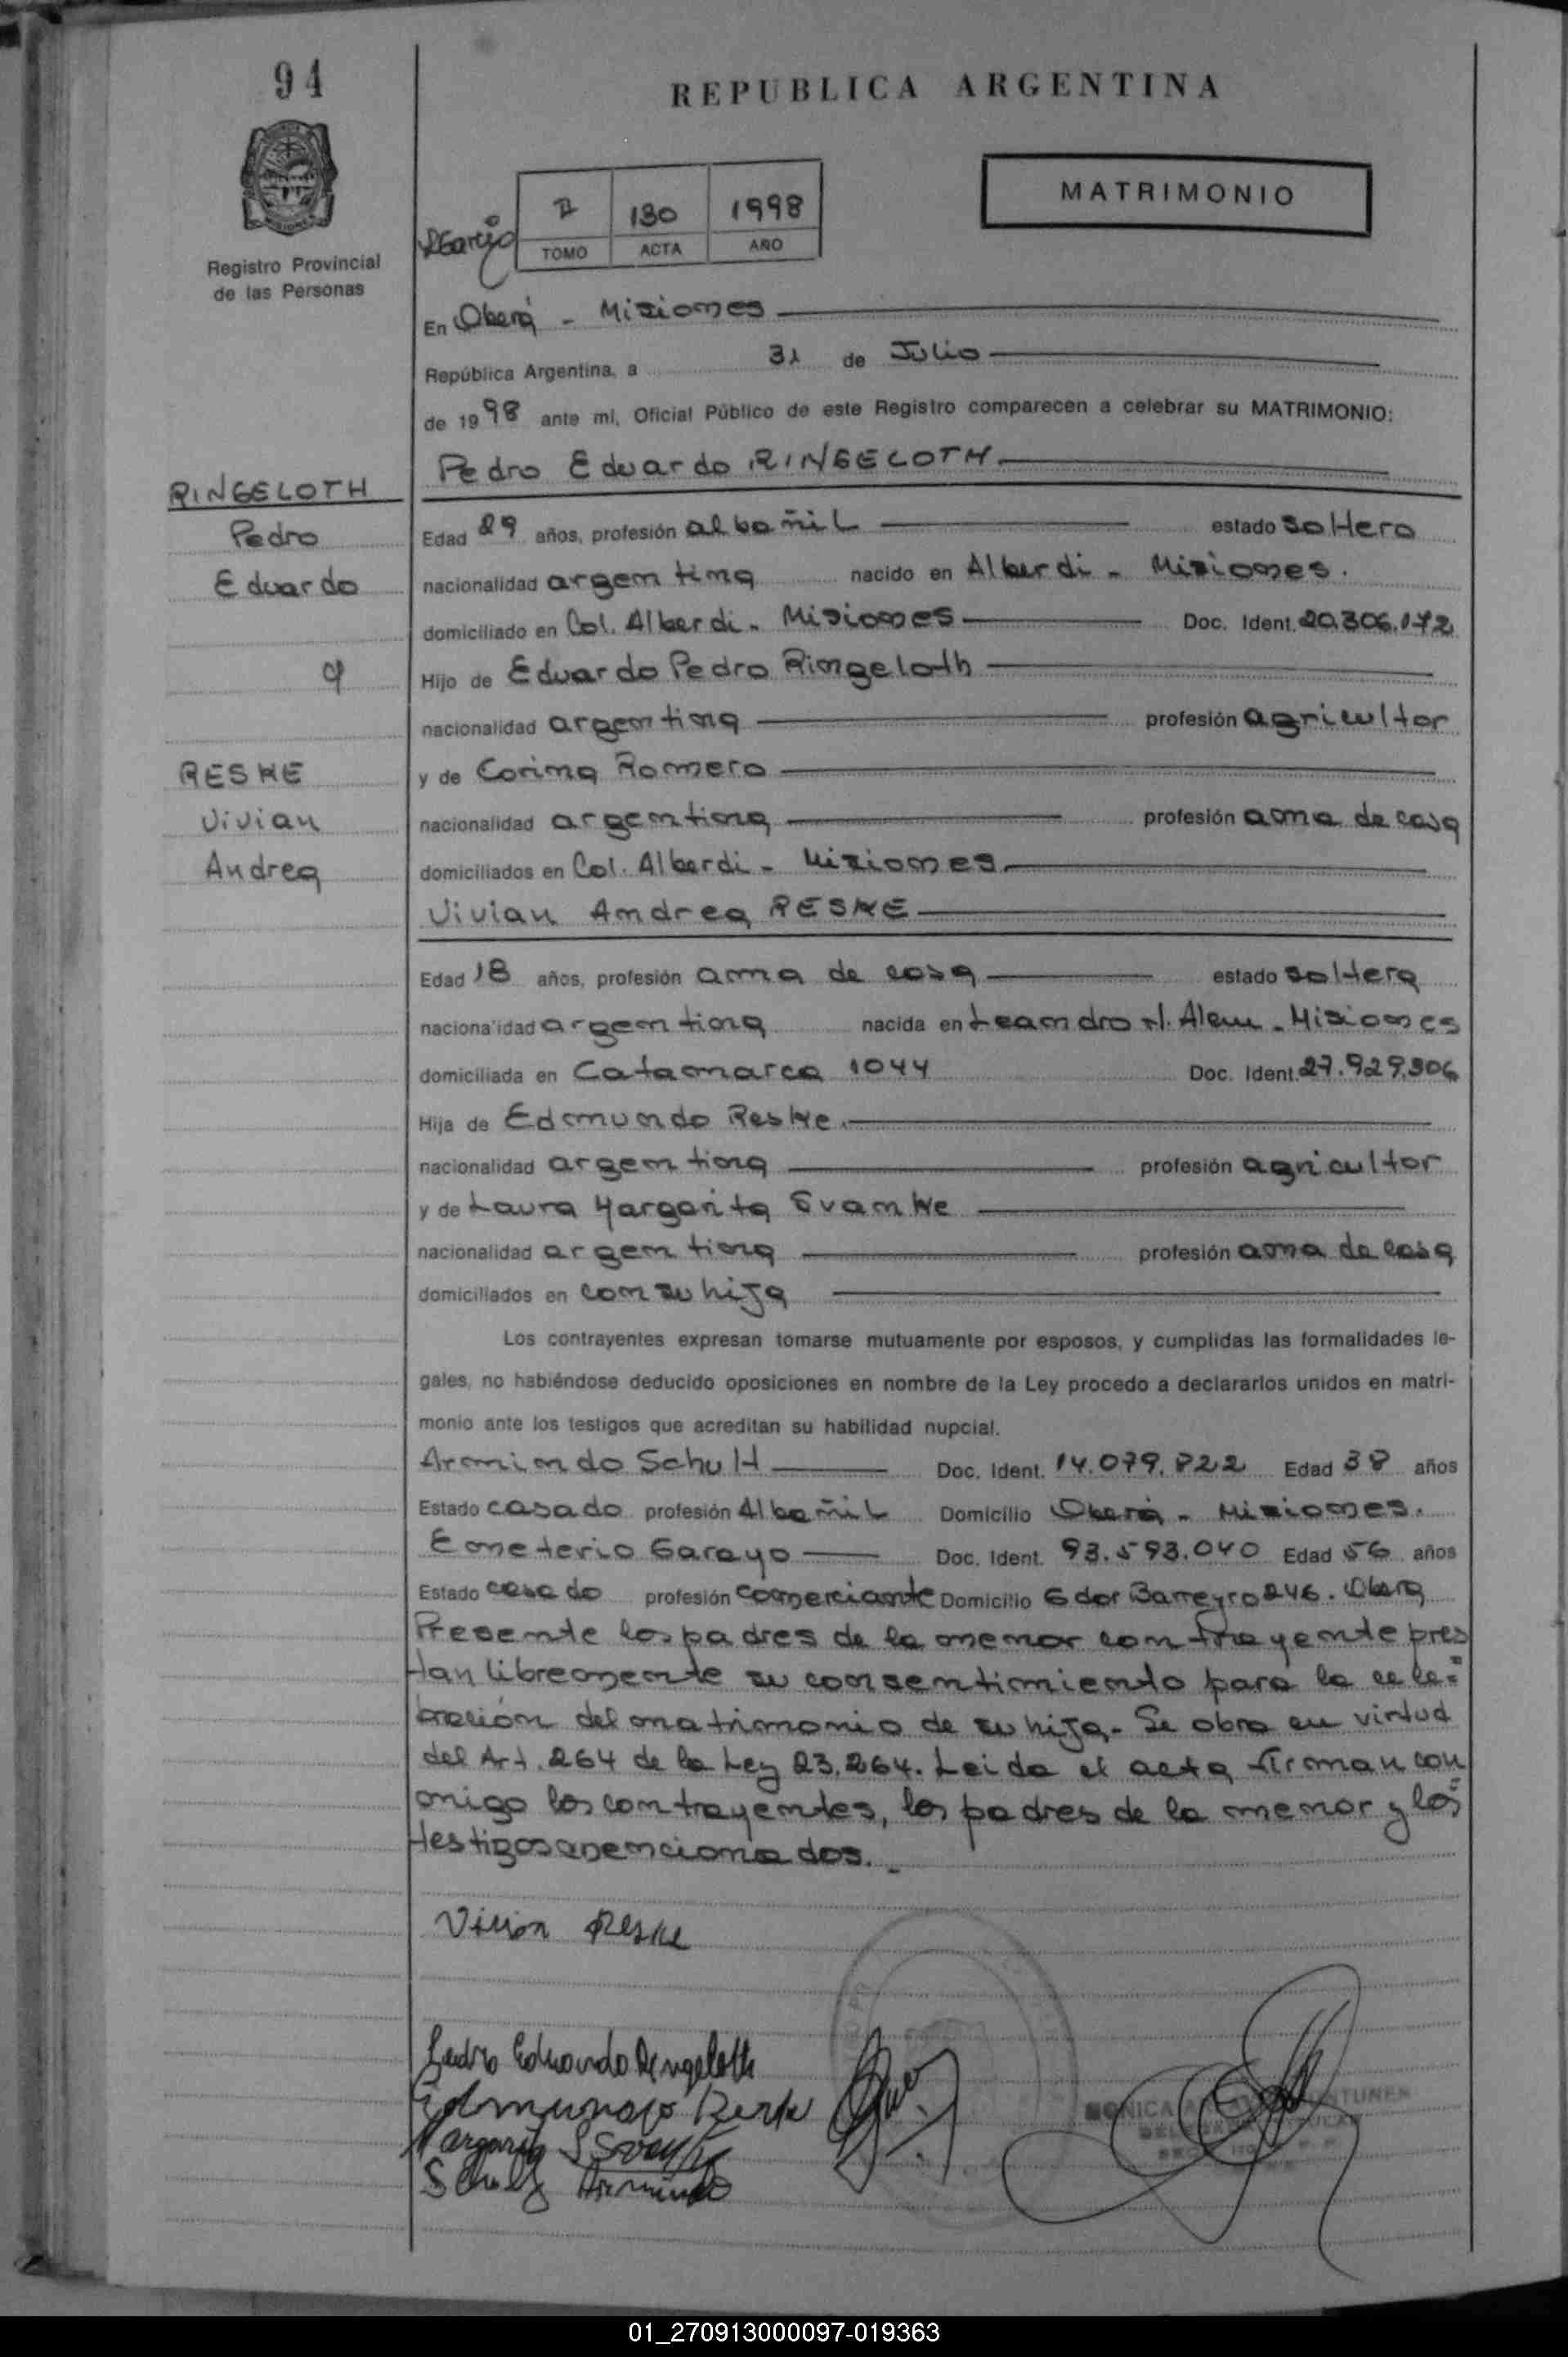 94
REPUBLICA ARGENTINA
MATRIMONIO
II 130 1998
TOMO ACTA AÑO
Registro Provincial
de las Personas
En Oberá - Misiones
República Argentina, a 31 de Julio
de 1998 ante mi, Oficial Público de este Registro comparecen a celebrar su MATRIMONIO:
Pedro Eduardo RINGELOTH
RINGELOTH
Pedro
Eduardo
Edad 29 años, profesión albañil estado soltero
nacionalidad argentina nacido en Alberdi - Misiones.
domiciliado en Col. Alberdi - Misiones Doc. Ident. 20.306.172
Hijo de Eduardo Pedro Ringeloth
nacionalidad argentina profesión agricultor
RESKE
Vivian
Andrea
y de Corina Romero
nacionalidad argentina profesión ama de casa
domiciliados en Col. Alberdi - Misiones
Vivian Andrea RESKE
Edad 18 años, profesión ama de casa estado soltera
nacionalidad argentina nacida en Leandro N. Alem - Misiones
domiciliada en Catamarca 1044 Doc. Ident. 27.929.306
Hija de Edmundo Reske.
nacionalidad argentina profesión agricultor
y de Laura Margarita Svanke
nacionalidad argentina profesión ama de casa
domiciliados en con su hija
Los contrayentes expresan tomarse mutuamente por esposos, y cumplidas las formalidades le-
gales, no habiéndose deducido oposiciones en nombre de la Ley procedo a declararlos unidos en matri-
monio ante los testigos que acreditan su habilidad nupcial.
Armindo Schult Doc. Ident. 14.079.822 Edad 38 años
Estado casado profesión Albañil Domicilio Oberá - Misiones.
Emeterio Garayo Doc. Ident. 93.593.040 Edad 56 años
Estado casado profesión comerciante Domicilio Gdor Barreyro 246. Oberá
Presente los padres de la menor contrayente pres
tan libremente su consentimiento para la cele=
bración del matrimonio de su hija.- Se obra en virtud
del Art. 264 de la Ley 23.264. Leida el acta firman con
migo los contrayentes, los padres de la menor y los
testigos menciona dos. -
Vivian Reske
Pedro Eduardo Ringeloth
Edmundo Reske
Margarita S
Schult Armindo
MONICA
01_270913000097-019363